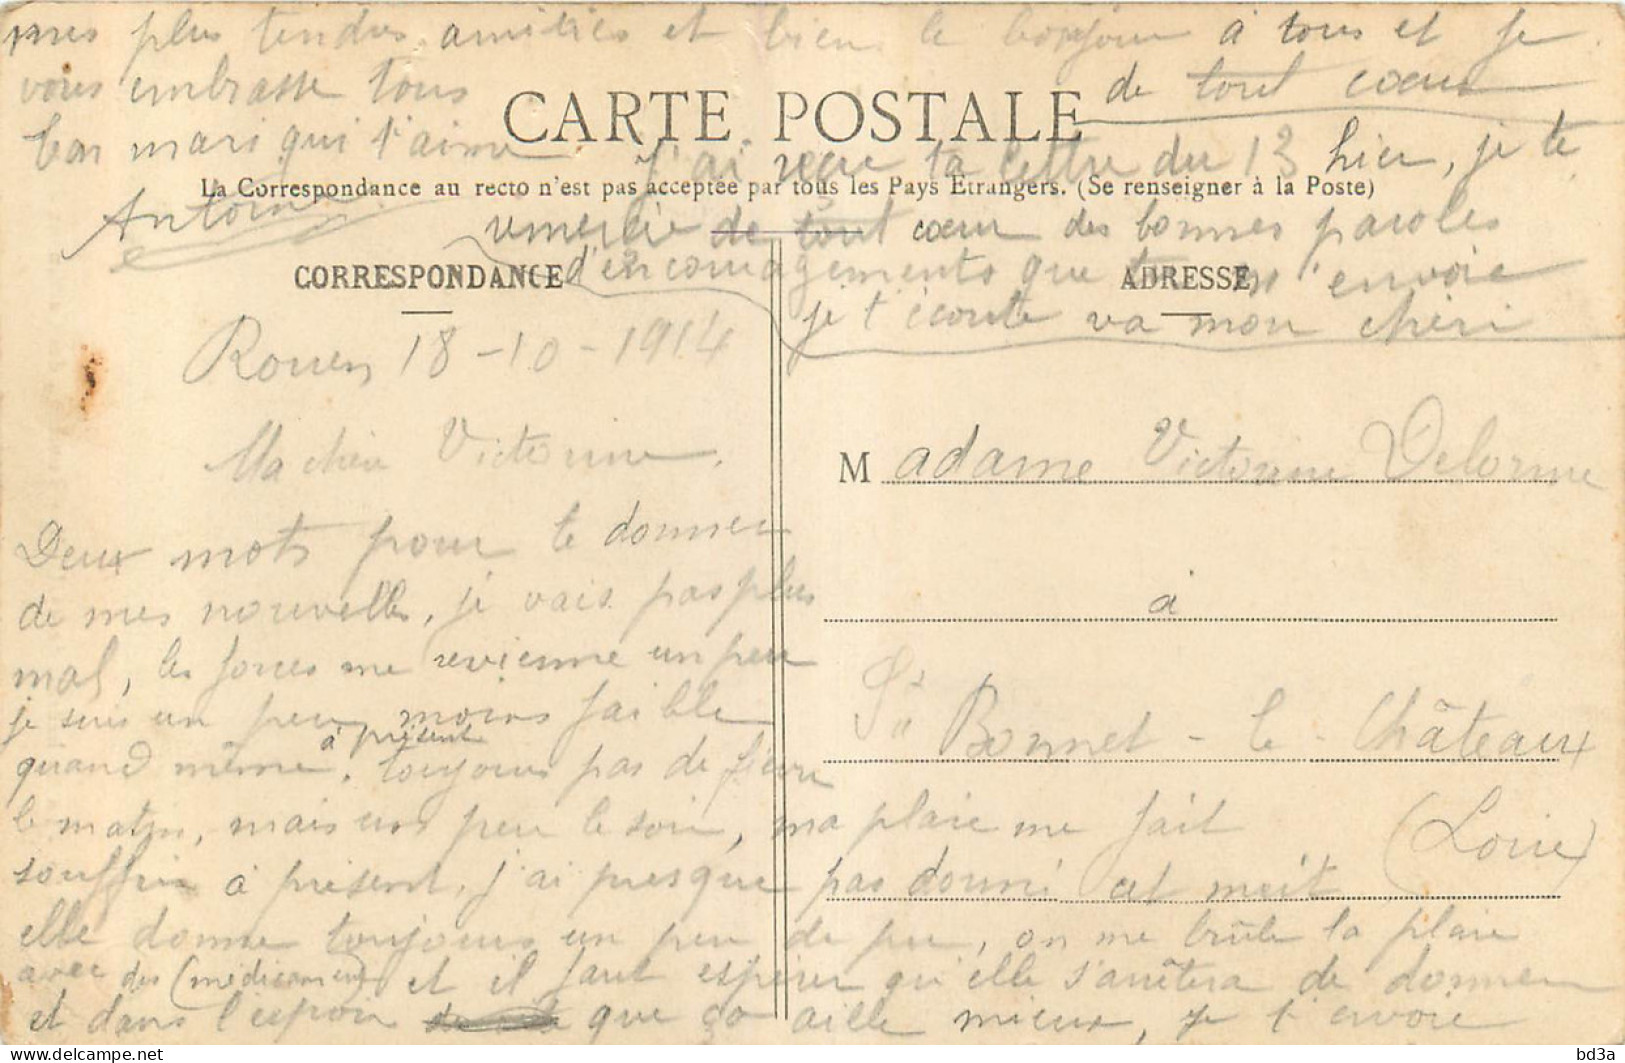 mes plus tendres amitiés et bien le bonjour à tous et je
vous embrasse tous
de tout cœur
ton mari qui t'aime
Antoine
CARTE POSTALE
J'ai reçu ta lettre du 13 hier, je te
La Correspondance au recto n'est pas acceptée par tous les Pays Etrangers. (Se renseigner à la Poste)
remercie de tout cœur des bonnes paroles
d'encouragements que tu m'envoie
je t'écoute va mon chéri
CORRESPONDANCE
ADRESSE
Rouen 18-10-1914
Ma chère Victorine.
Deux mots pour te donner
de mes nouvelles, je vais pas plus
mal, les forces me revienne un peu
je suis un peu moins faible
quand même à présent. toujours pas de fièvre
le matin, mais un peu le soir, ma plaie me fait
souffrir à présent, j'ai presque pas dormi cet nuit
elle donne toujours un peu de pu, on me brûle la plaie
avec des (médicament) et il faut espérer qu'elle s'arrêtera de donner
et dans l'espoir que ça aille mieux, je t'envoie
Madame Victorine Delorme
à
St Bonnet-le-Châteaux
(Loire)
bd3a